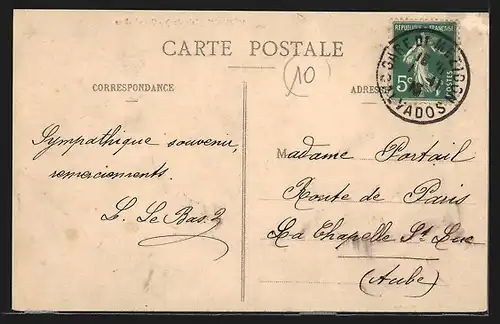 CARTE POSTALE
(10)
CORRESPONDANCE
ADRESSE
RÉPUBLIQUE FRANÇAISE
5c
POSTES
GARE DE
CALVADOS
Sympathique souvenir,
remerciements.
L. Le Bas
Madame Portail
Route de Paris
La Chapelle St Luc
(Aube)